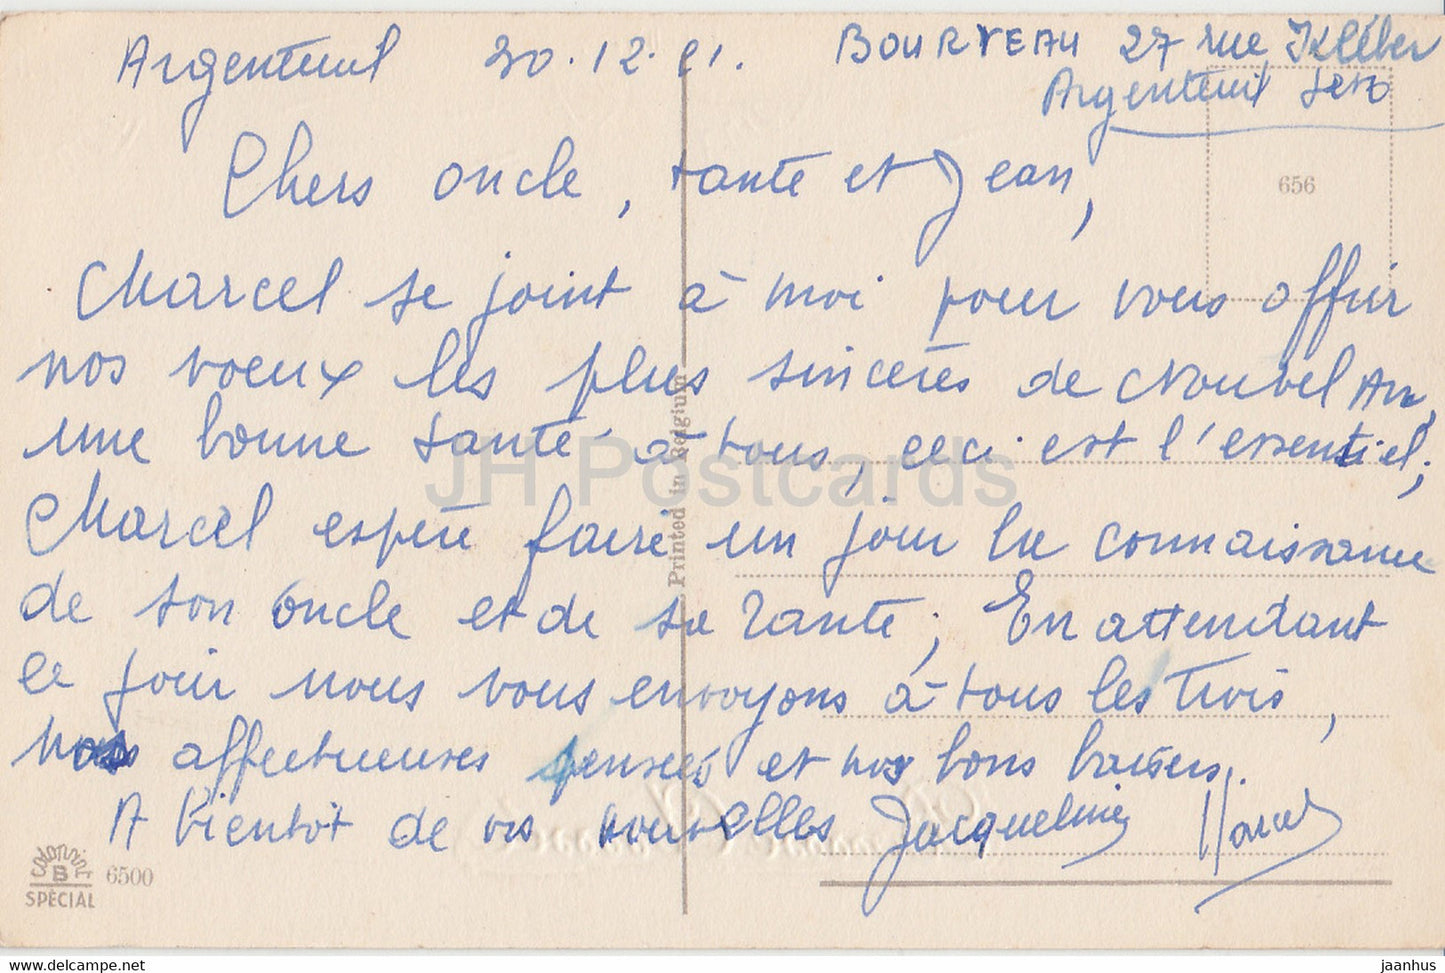 Argenteuil 30.12.61. BOURVEAU 27 rue Kléber
Argenteuil
656
Chers oncle, tante et Jean,
Marcel se joint à moi pour vous offrir
nos voeux les plus sincères de Nouvel An,
une bonne santé à tous, ceci est l'essentiel;
Marcel espère faire un jour la connaissance
de son oncle et de sa Tante; En attendant
ce jour nous vous envoyons à tous les Trois,
nos affectueuses pensées et nos bons baisers.
A bientôt de vos nouvelles Jacqueline Marcel
Printed in Belgium
JH Postcards
colorprint
B
SPÉCIAL
6500
www.delcampe.net
jaanhus